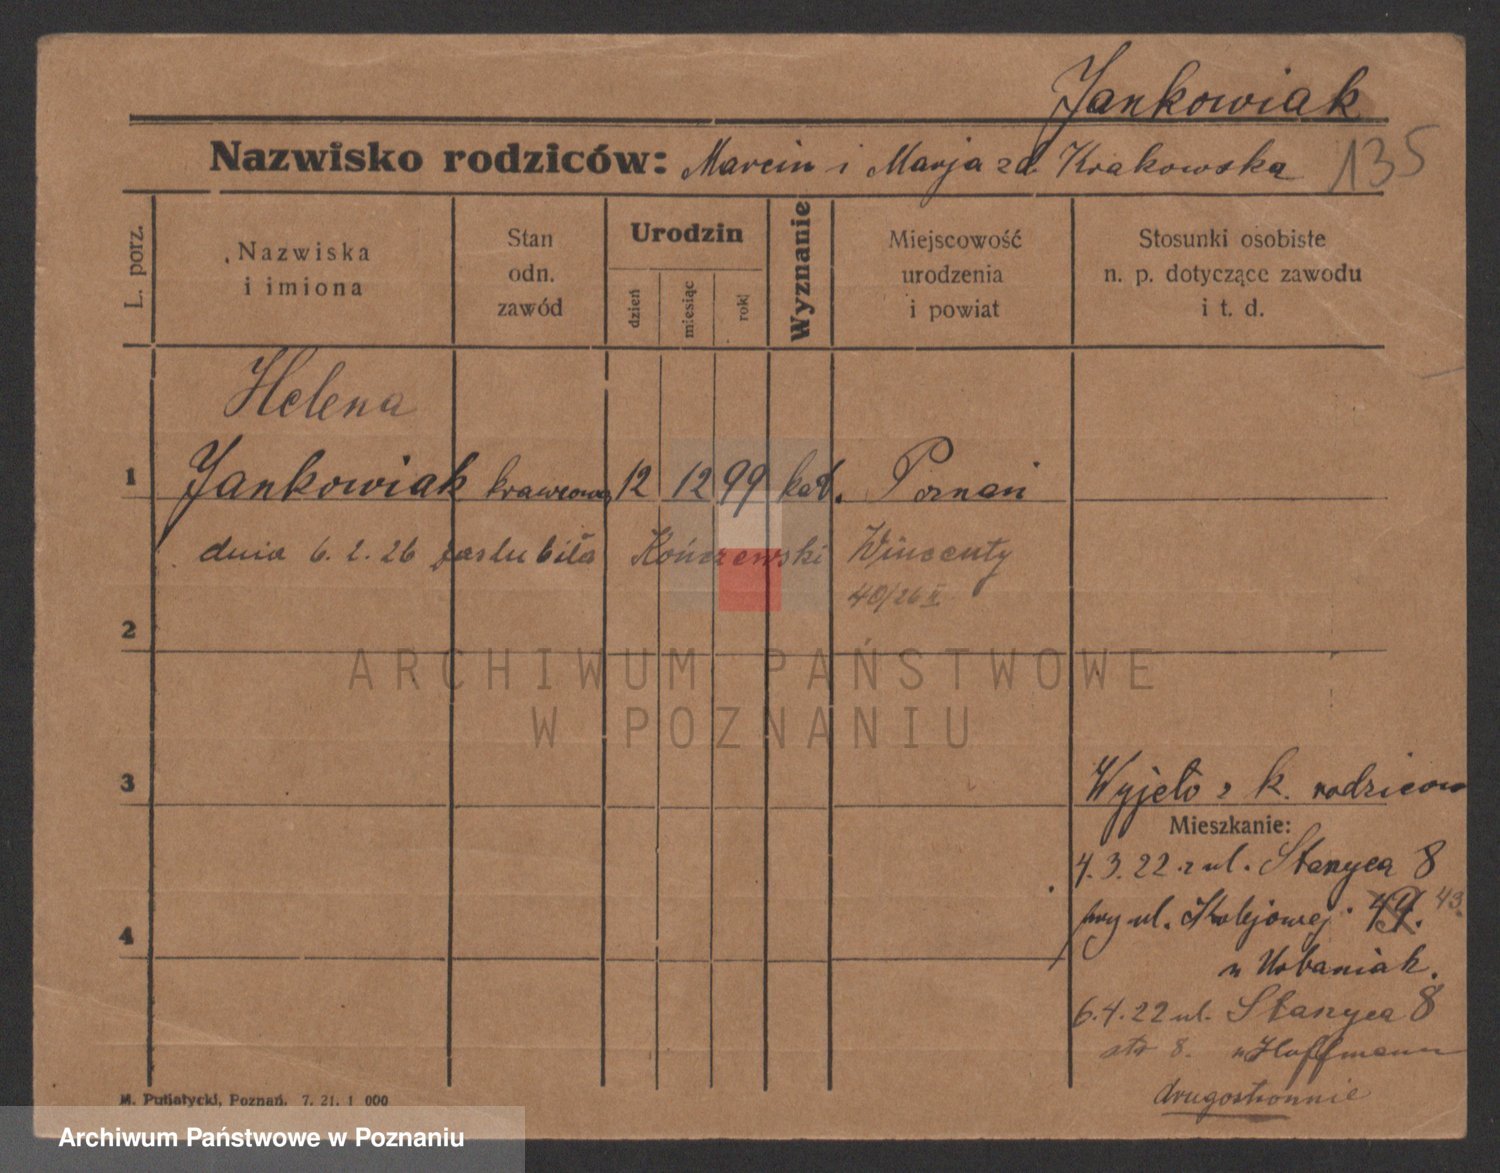 Jankowiak
Nazwisko rodziców: Marcin i Marja zd. Krakowska 135
L. porz.
Nazwiska
i imiona
Stan
odn.
zawód
Urodzin
dzień
miesiąc
rok
Wyznanie
Miejscowość
urodzenia
i powiat
Stosunki osobiste
n. p. dotyczące zawodu
i t. d.
Helena
1 Jankowiak krawcowa 12 12 99 kat. Poznań
dnia 6. 2. 26 zaślubiła Kończewski Wincenty
40/26 II
2
ARCHIWUM PAŃSTWOWE
W POZNANIU
3
Wyjęto z k. rodziców
Mieszkanie:
4. 3. 22 z ul. Stanyca 8
przy ul. Kolejowej 49. 43.
4
u Urbaniak.
6. 4. 22 ul. Stanyca 8
8. u Hoffmann
drugostronnie
M. Putiatycki, Poznań. 7. 21. 1 000
Archiwum Państwowe w Poznaniu